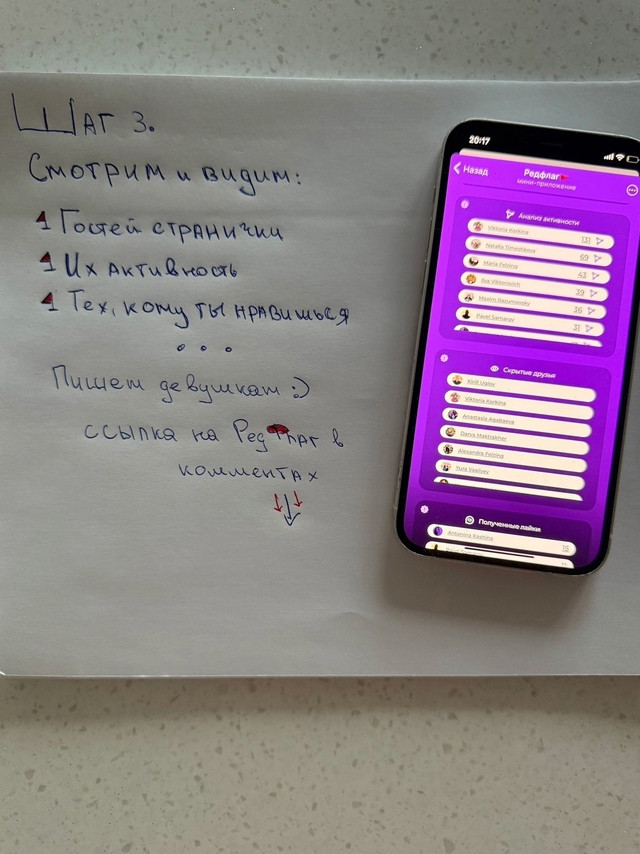 Шаг 3.
Смотрим и видим:
1 Гостей странички
1 Их активность
1 Тех, кому ты нравишься
...
Пишем девушкам :)
ссылка на РедФлаг в
комментах
20:17
Назад
Редфлаг
мини-приложение
Анализ активности
Viktoria Korkina 131
Natalia Timoshkova 69
Maria Febling 43
Eva Viktorovich 39
Maxim Razumovsky 36
Pavel Samarov 31
Скрытые друзья
Kirill Uralov
Viktoria Korkina
Anastasia Agabaeva
Darya Maktrakher
Alexandra Febling
Yura Vasilyev
Полученные лайки
Antonina Kashina 15